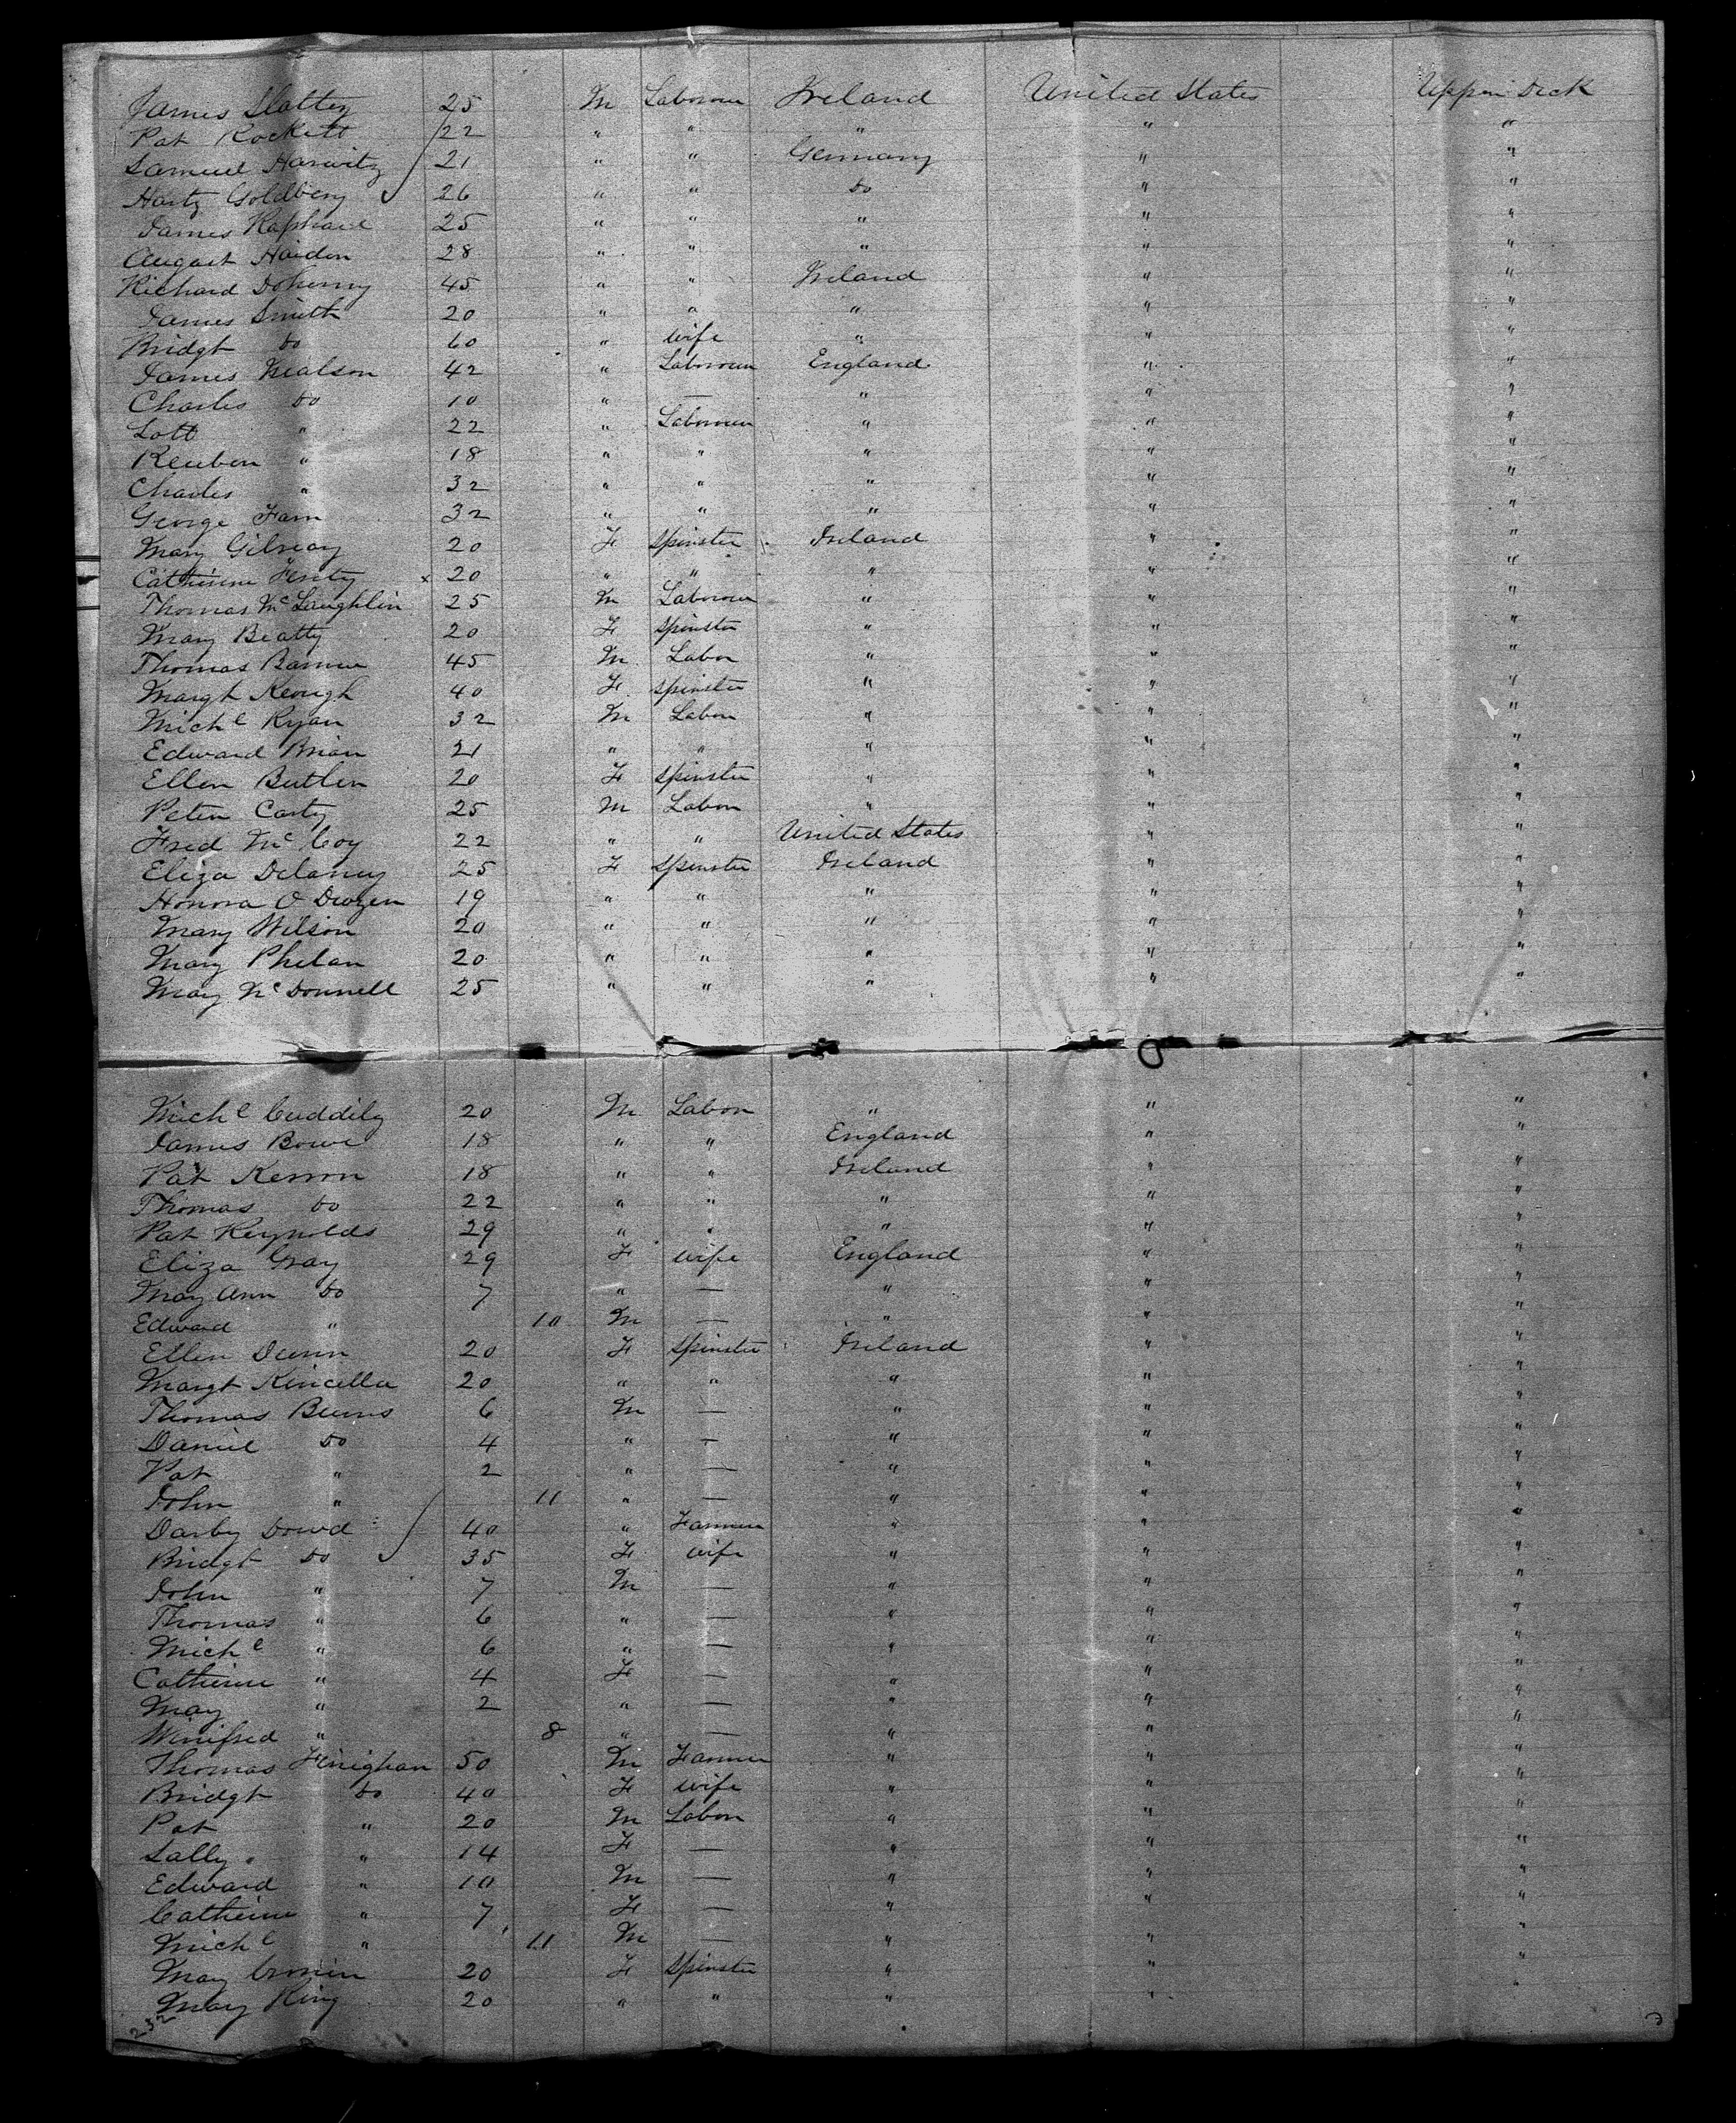 James Slattery 25 M Labourer Ireland United States Upper Deck
Pat Rockett 22 " " " " "
Samuel Harwitz 21 " " Germany " "
Hartz Goldberg 26 " " do " "
James Raphael 25 " " " " "
August Haiden 28 " " " " "
Richard Doherny 45 " " Ireland " "
James Smith 20 " " " " "
Bridgt do 60 " wife " " "
James Malson 42 " Labourer England " "
Charles do 10 " — " " "
Lott " 22 " Labourer " " "
Reuben " 18 " " " " "
Charles " 32 " " " " "
George Farn 32 " " " " "
Mary Gilreay 20 F Spinster Ireland " "
Catherine Fenty x 20 " " " " "
Thomas McLaughlin 25 M Labourer " " "
Mary Beatty 20 F Spinster " " "
Thomas 45 M Labor " " "
Margt Keough 40 F Spinster " " "
Michl Ryan 32 M Labor " " "
Edward Brian 21 " " " " "
Ellen Butler 20 F Spinster " " "
Peter Carty 25 M Labor " " "
Fred McCoy 22 " " United States " "
Eliza Delaney 25 F Spinster Ireland " "
Honora O 19 " " " " "
Mary Wilson 20 " " " " "
Mary Phelan 20 " " " " "
Mary McDonnell 25 " " " " "
Michl Cuddily 20 M Labor " " "
James Bowe 18 " " England " "
Pat Kerron 18 " " Ireland " "
Thomas do 22 " " " " "
Pat Reynolds 29 " " " " "
Eliza Gray 29 F wife England " "
Mary Ann do 7 " — " " "
Edward " 10 M — " " "
Ellen Dunn 20 F Spinster Ireland " "
Margt Kincella 20 " " " " "
Thomas Burns 6 M — " " "
Daniel do 4 " — " " "
Pat " 2 " — " " "
John " 11 " — " " "
Darby Dowd 40 " Farmer " " "
Bridgt do 35 F wife " " "
John " 7 M — " " "
Thomas " 6 " — " " "
Michl " 6 " — " " "
Catherine " 4 F — " " "
Mary " 2 " — " " "
Winifred " 8 " — " " "
Thomas Finighan 50 M Farmer " " "
Bridgt do 40 F wife " " "
Pat " 20 M Labor " " "
Sally " 14 F — " " "
Edward " 10 M — " " "
Catherine " 7 F — " " "
Michl " 11 M — " " "
Mary Cronin 20 F Spinster " " "
Mary King 20 " " " " "
232